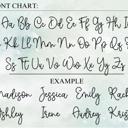 ONT CHART:
Aa Bb Cc Dd Ee Ff Gg Hh Ii
Kk Ll Mm Nn Oo Pp Qq Rr
Ss Tt Uu Vv Ww Xx Yy Zz
EXAMPLE
Madison Jessica Emily Rach
Ashley Irene Audrey Krist